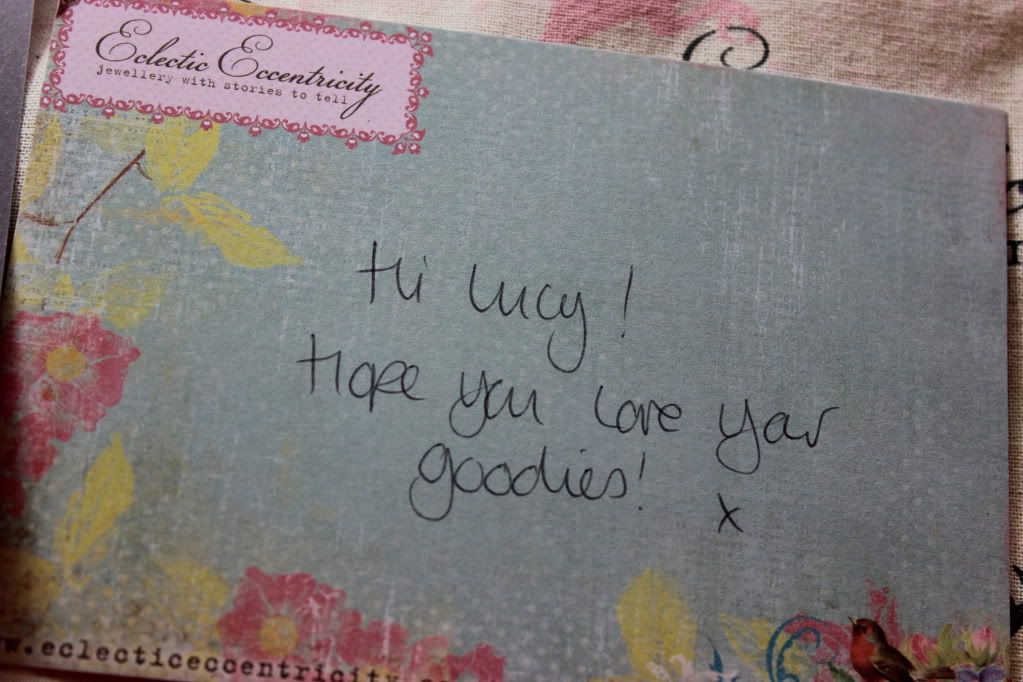 Eclectic Eccentricity
jewellery with stories to tell
Hi Lucy!
Hope you love your
goodies!
x
w.eclecticeccentricity.